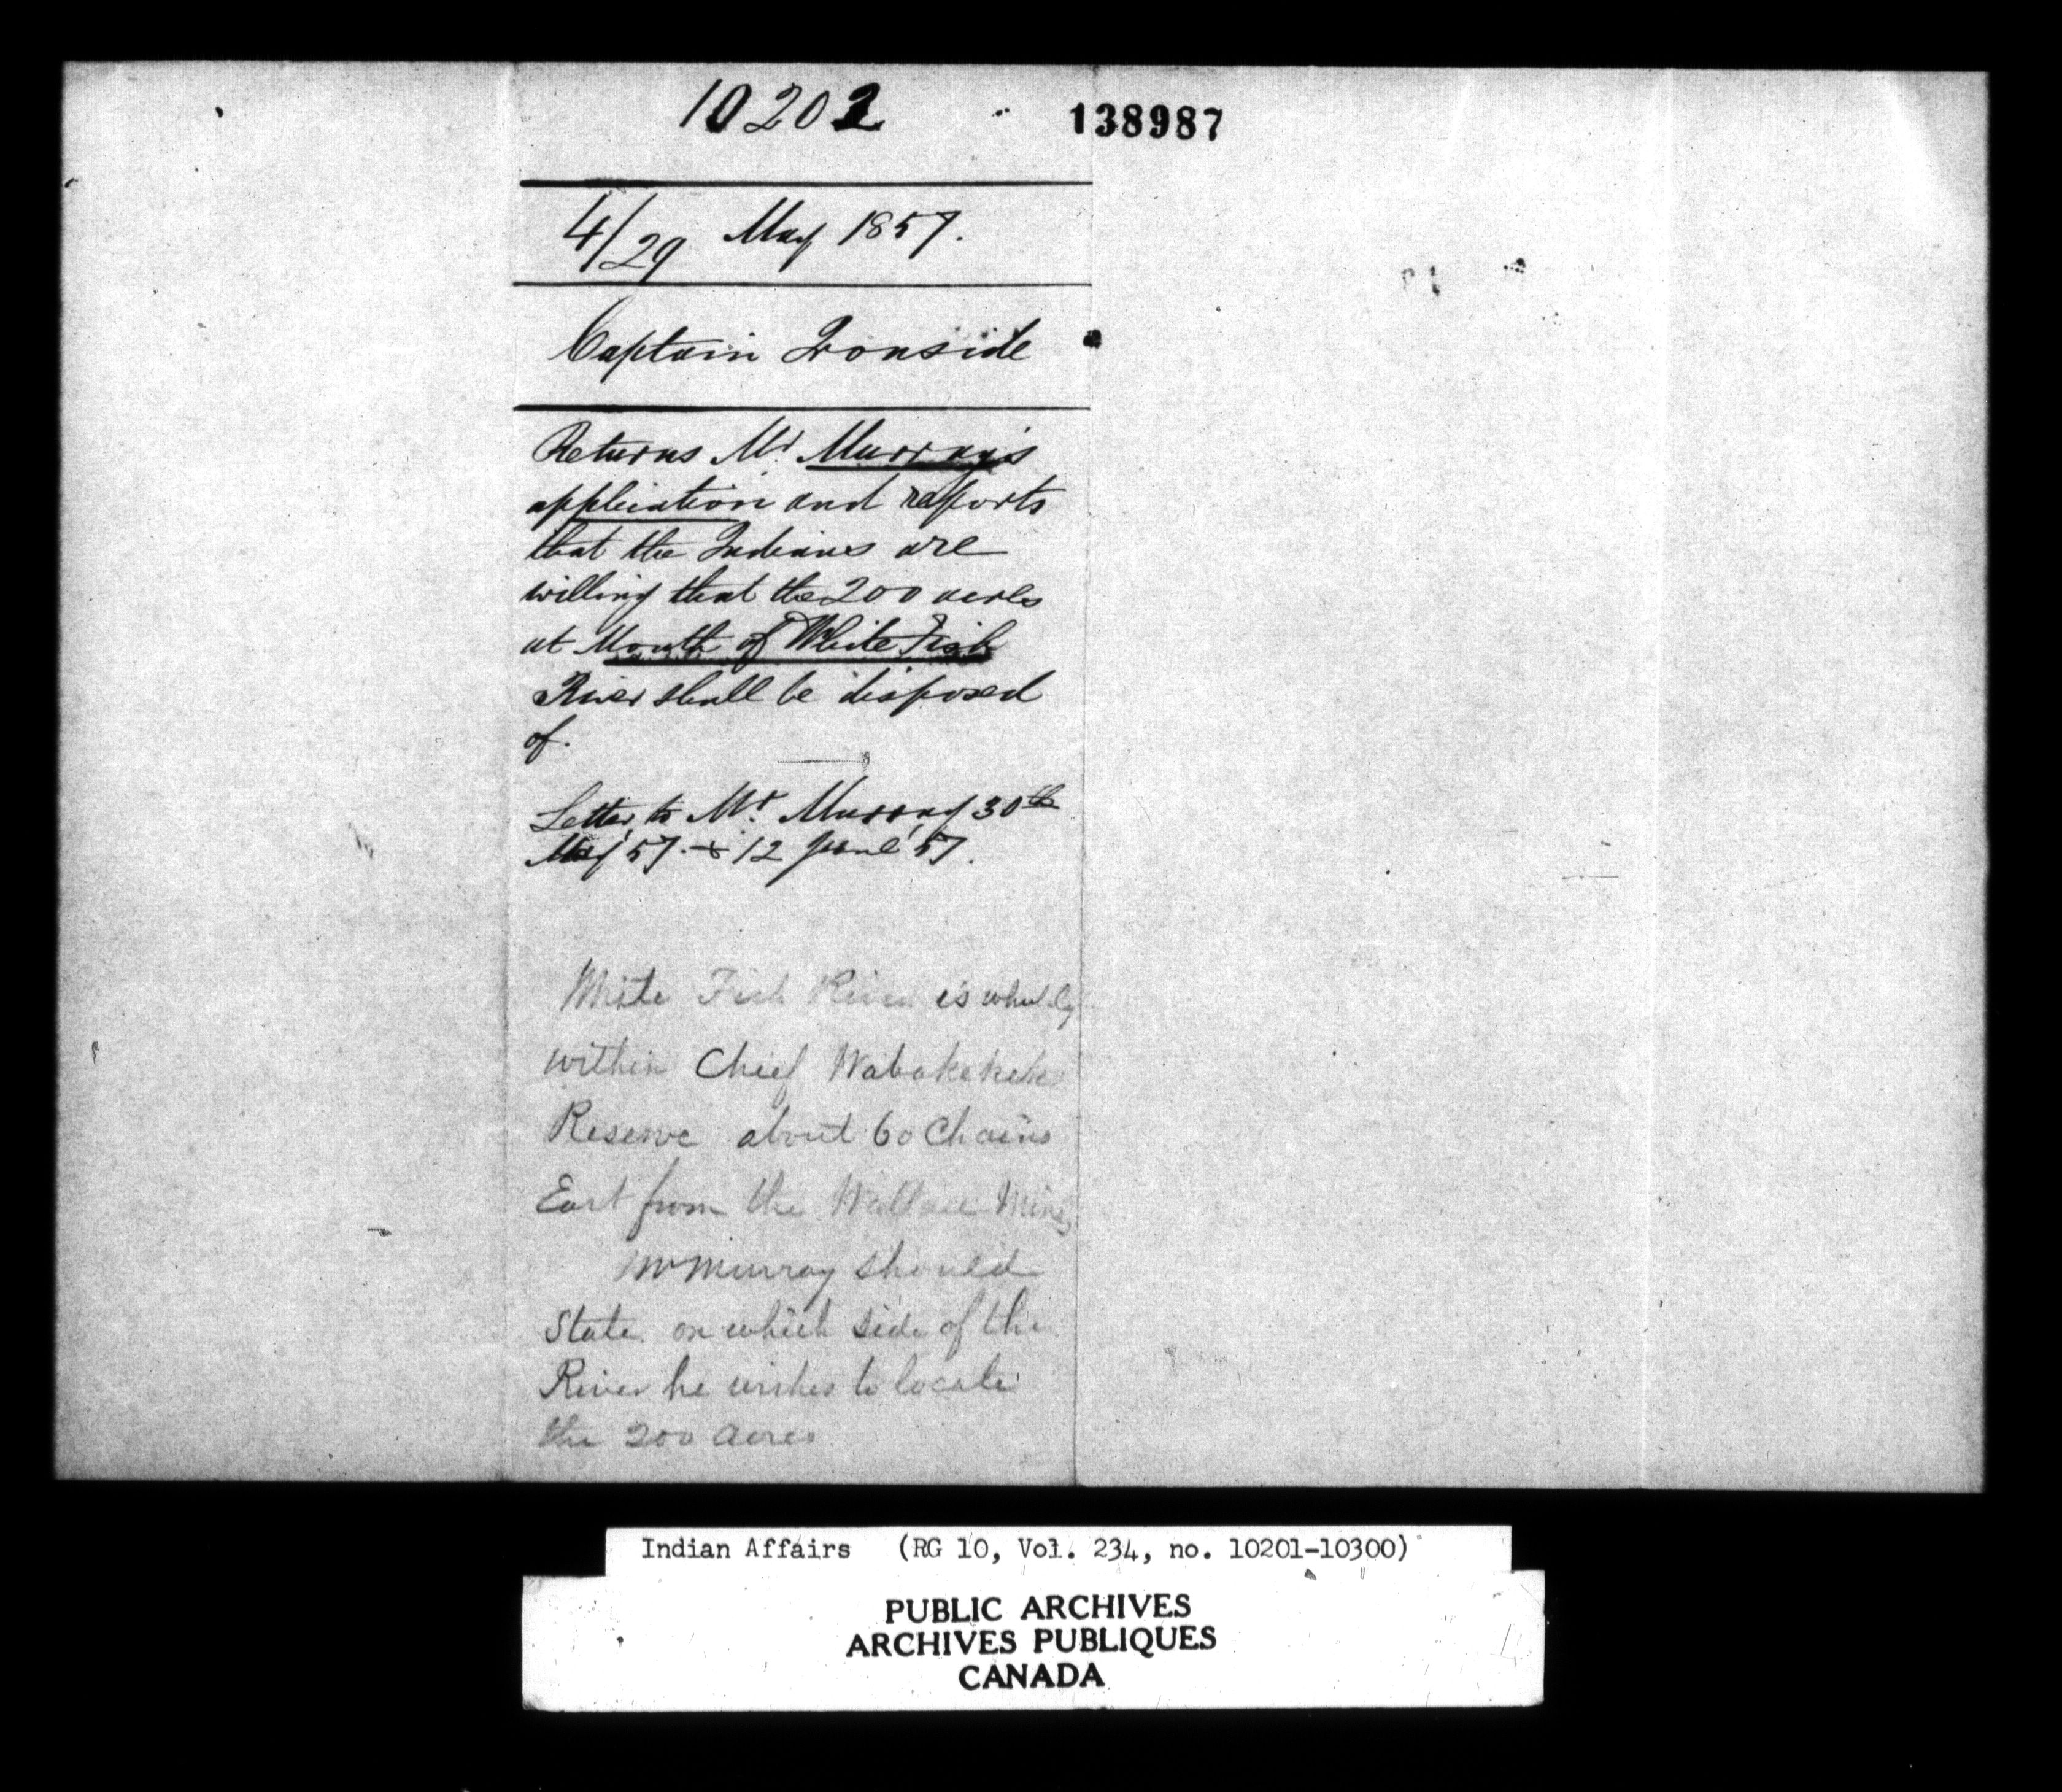 10202
138987
4/29 May 1857.
Captain Ironside
Returns Mr. Murray's
application and reports
that the Indians are
willing that the 200 acres
at Mouth of White Fish
River shall be disposed
of.
Letter to Mr. Murray 30th
May '57. & 12 June '57.
White Fish River is wholly
within Chief Wabakekeks
Reserve about 60 Chains
East from the Wallace Mine
Mr Murray should
State on which side of the
River he wishes to locate
the 200 acres
Indian Affairs (RG 10, Vol. 234, no. 10201-10300)
PUBLIC ARCHIVES
ARCHIVES PUBLIQUES
CANADA